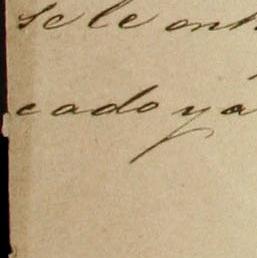 se le ent
cado y a